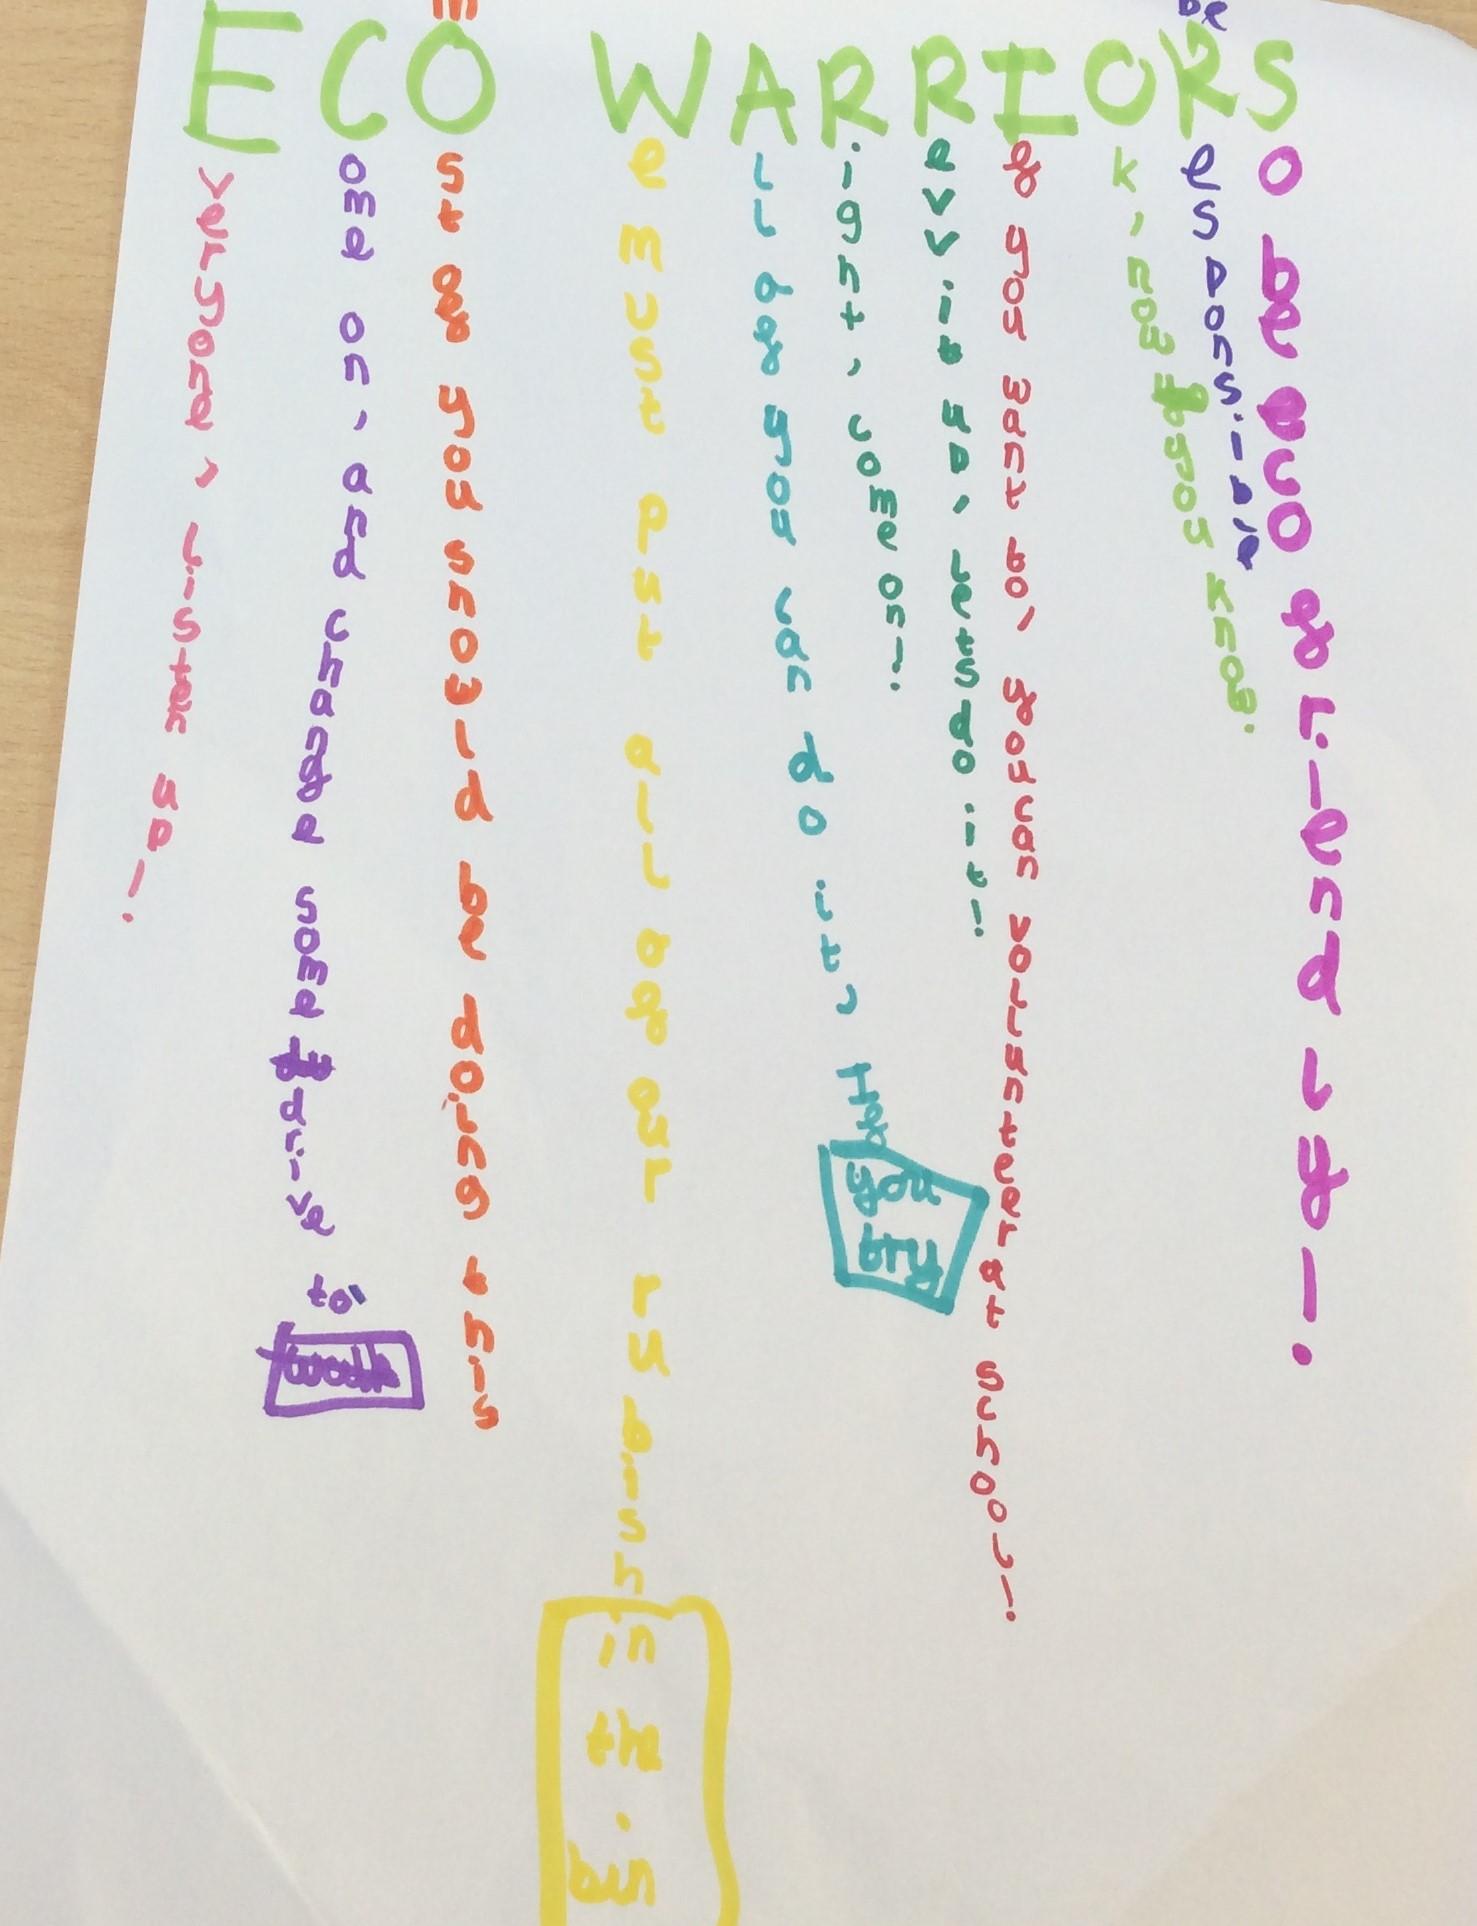 m
be
ECO WARRIORS
veryone, listen up!
ome on, and change some drive to walk
st of you should be doing this
e must put all of our rubish in the bin
ll of you can do it, If you try
ight, come on!
evv it up, lets do it!
f you want to, you can vollunteer at school!
k, now you know.
esponsible
o be eco friendly!